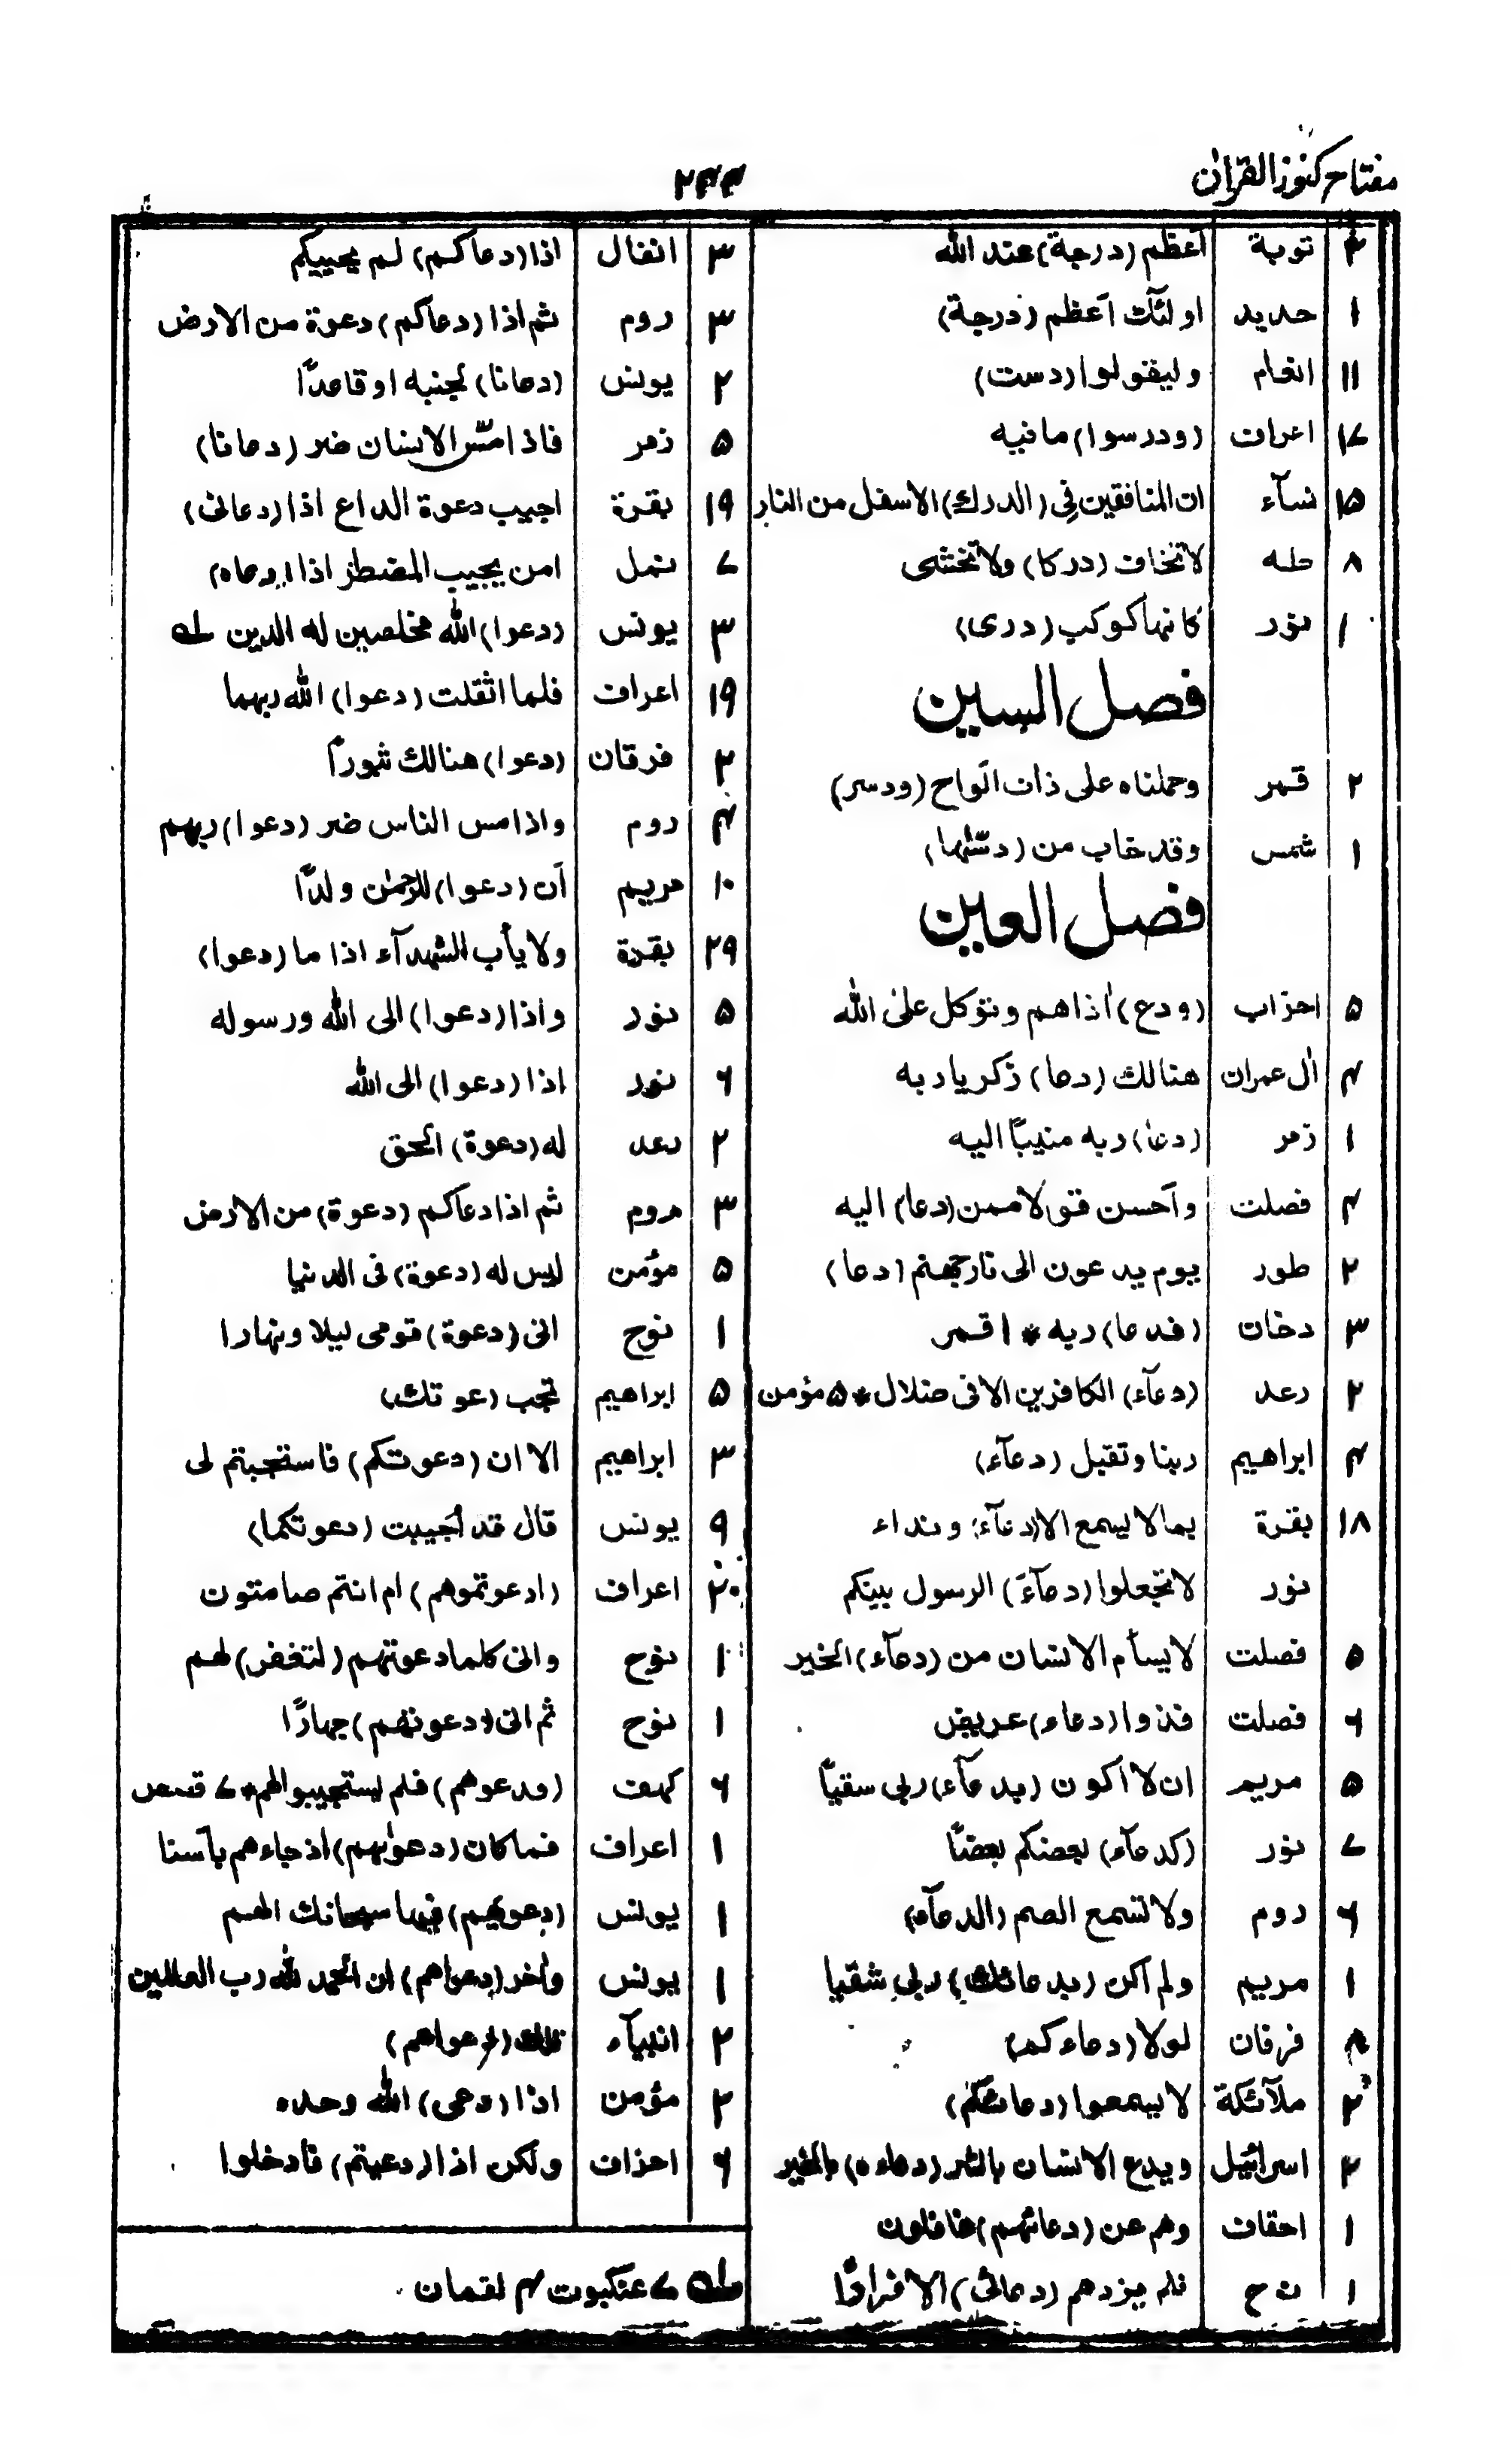 مفتاح كنوز القرآن
٢٣٣
٣ توبة أعظم (درجة) عند الله
١ حديد اولئك أعظم (درجة)
١١ انعام وليقولوا (درست)
١٧ اعراف (ودرسوا) ما فيه
١٥ نسآء ان المنافقين فى (الدرك) الاسفل من النار
٨ طه لا تخاف (دركا) ولا تخشى
١ نور كانها كوكب (درى)
فصل السين
٢ قمر وحملناه على ذات الواح (ودسر)
١ شمس وقد خاب من (دسّٰها)
فصل العين
٥ احزاب (ودع) اذاهم وتوكل على الله
٤ اٰل عمران هنالك (دعا) زكريا ربه
١ زمر (دعا) ربه منيبًا اليه
٤ فصلت وأحسن قولا ممن (دعا) اليه
٢ طور يوم يدعون الى نار جهنم (دعا)
٣ دخان (فدعا) ربه * ١ قمر
٢ رعد (دعآء) الكافرين الا فى ضلال * ٥ مؤمن
٤ ابراهيم ربنا وتقبل (دعآء)
١٨ بقرة بما لا يسمع الا (دعآء) ونداء
نور لا تجعلوا (دعآء) الرسول بينكم
٥ فصلت لا يسأم الانسان من (دعآء) الخير
٦ فصلت فذوا (دعاء) عريض
٥ مريم ان لا اكون (بدعآء) ربى سقيًا
٧ نور (كدعآء) بعضكم بعضًا
٦ روم ولا تسمع الصم (الدعآء)
١ مريم ولم اكن (بدعائك) ربى شقيا
٤ فرقان لولا (دعاءكم)
٢ ملآئكة لا يسمعوا (دعائكم)
٢ اسرائيل ويدع الانسان بالشر (دعاءه) بالخير
١ احقاف وهم عن (دعائهم) غافلون
١ ن ح فلم يزدهم (دعائى) الا فرارًا
٣ انفال اذا (دعاكم) لم يحييكم
٣ روم ثم اذا (دعاكم) دعوة من الارض
٢ يونس (دعانا) لجنبه او قاعدًا
٥ زمر فاذا مسّ الانسان ضر (دعانا)
١٩ بقرة اجيب دعوة الداع اذا (دعانى)
٧ نمل امن يجيب المضطر اذا (دعاه)
٣ يونس (دعوا) الله مخلصين له الدين له
١٩ اعراف فلما اثقلت (دعوا) الله ربهما
٢ فرقان (دعوا) هنالك ثبورًا
٤ روم واذا مس الناس ضر (دعوا) ربهم
١٠ مريم أن (دعوا) للرحمٰن ولدًا
٢٩ بقرة ولا يأب الشهدآء اذا ما (دعوا)
٥ نور واذا (دعوا) الى الله ورسوله
٦ نور اذا (دعوا) الى الله
٢ رعد له (دعوة) الحق
٣ روم ثم اذا دعاكم (دعوة) من الارض
٥ مؤمن ليس له (دعوة) فى الدنيا
١ نوح انى (دعوة) قومى ليلا ونهارا
٥ ابراهيم نجب (دعوتك)
٣ ابراهيم الا ان (دعوتكم) فاستجبتم لى
٩ يونس قال قد أجيبت (دعوتكما)
٢٠ اعراف (ادعوتموهم) ام انتم صامتون
١ نوح وانى كلما دعوتهم (لتغفر) لهم
١ نوح ثم انى (دعوتهم) جهارًا
٦ كهف (فدعوهم) فلم يستجيبوا لهم * ٧ قصص
١ اعراف فما كان (دعوٰيهم) اذ جاءهم بأسنا
١ يونس (دعويهم) فيها سبحانك اللهم
١ يونس واٰخر (دعواهم) ان الحمد لله رب العالمين
٢ انبيآء تلك (دعواهم)
٢ مؤمن اذا (دعى) الله وحده
٦ احزاب ولكن اذا (دعيتم) فادخلوا
له ٧ عنكبوت ٤ لقمان